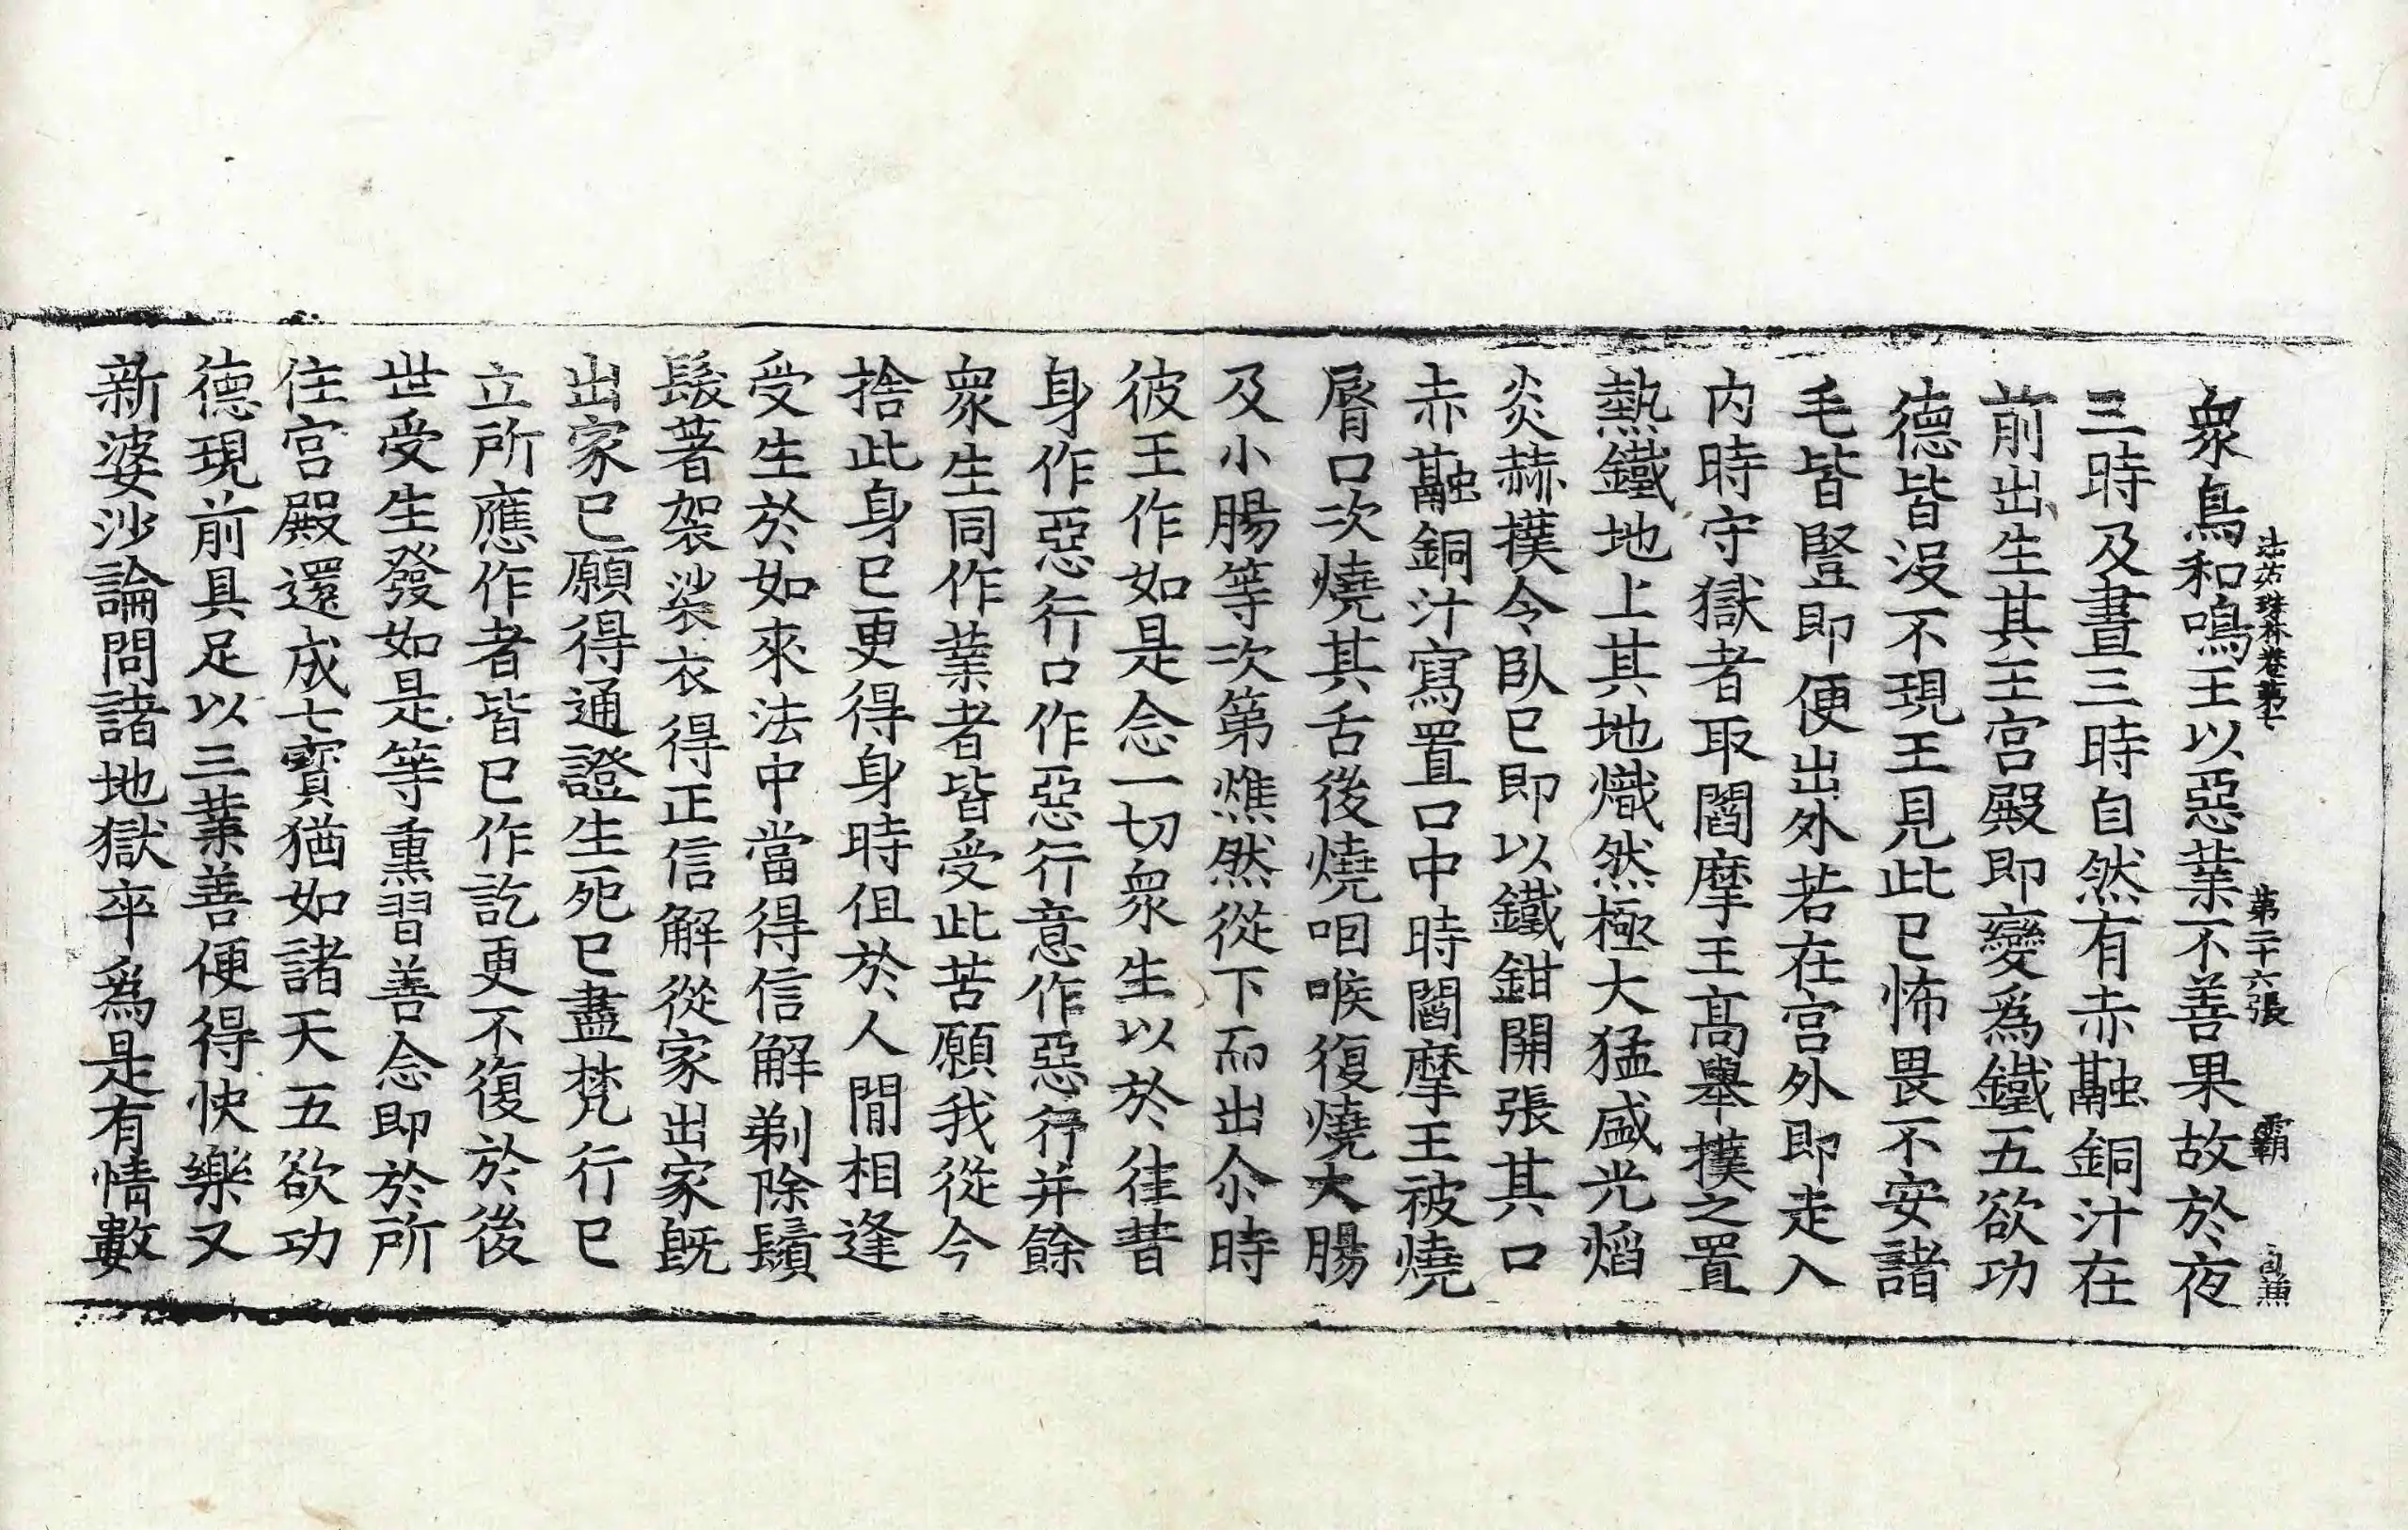 法苑珠林卷第七　第二十六張　霸
衆鳥和鳴王以惡業不善果故於夜
三時及晝三時自然有赤融銅汁在
前出生其王宮殿即變爲鐵五欲功
德皆沒不現王見此已怖畏不安諸
毛皆豎即便出外若在宮外即走入
内時守獄者取閻摩王高舉撲之置
熱鐵地上其地熾然極大猛盛光焰
炎赫撲令臥已即以鐵鉗開張其口
赤融銅汁寫置口中時閻摩王被燒
脣口次燒其舌後燒咽喉復燒大腸
及小腸等次第燋然從下而出尒時
彼王作如是念一切衆生以於往昔
身作惡行口作惡行意作惡行并餘
衆生同作業者皆受此苦願我從今
捨此身已更得身時但於人間相逢
受生於如來法中當得信解剃除鬚
髮著袈裟衣得正信解從家出家既
出家已願得通證生死已盡梵行已
立所應作者皆已作訖更不復於後
世受生發如是等熏習善念即於所
住宮殿還成七寶猶如諸天五欲功
德現前具足以三業善便得快樂又
新婆沙論問諸地獄卒爲是有情數